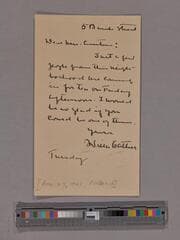 5 Bank Street
Dear Mrs. :
Just a few
people from this neigh-
borhood are coming
in for tea on Friday
afternoon. I would
be so glad if you
could be one of them.
Yours
Willa Cather
Tuesday